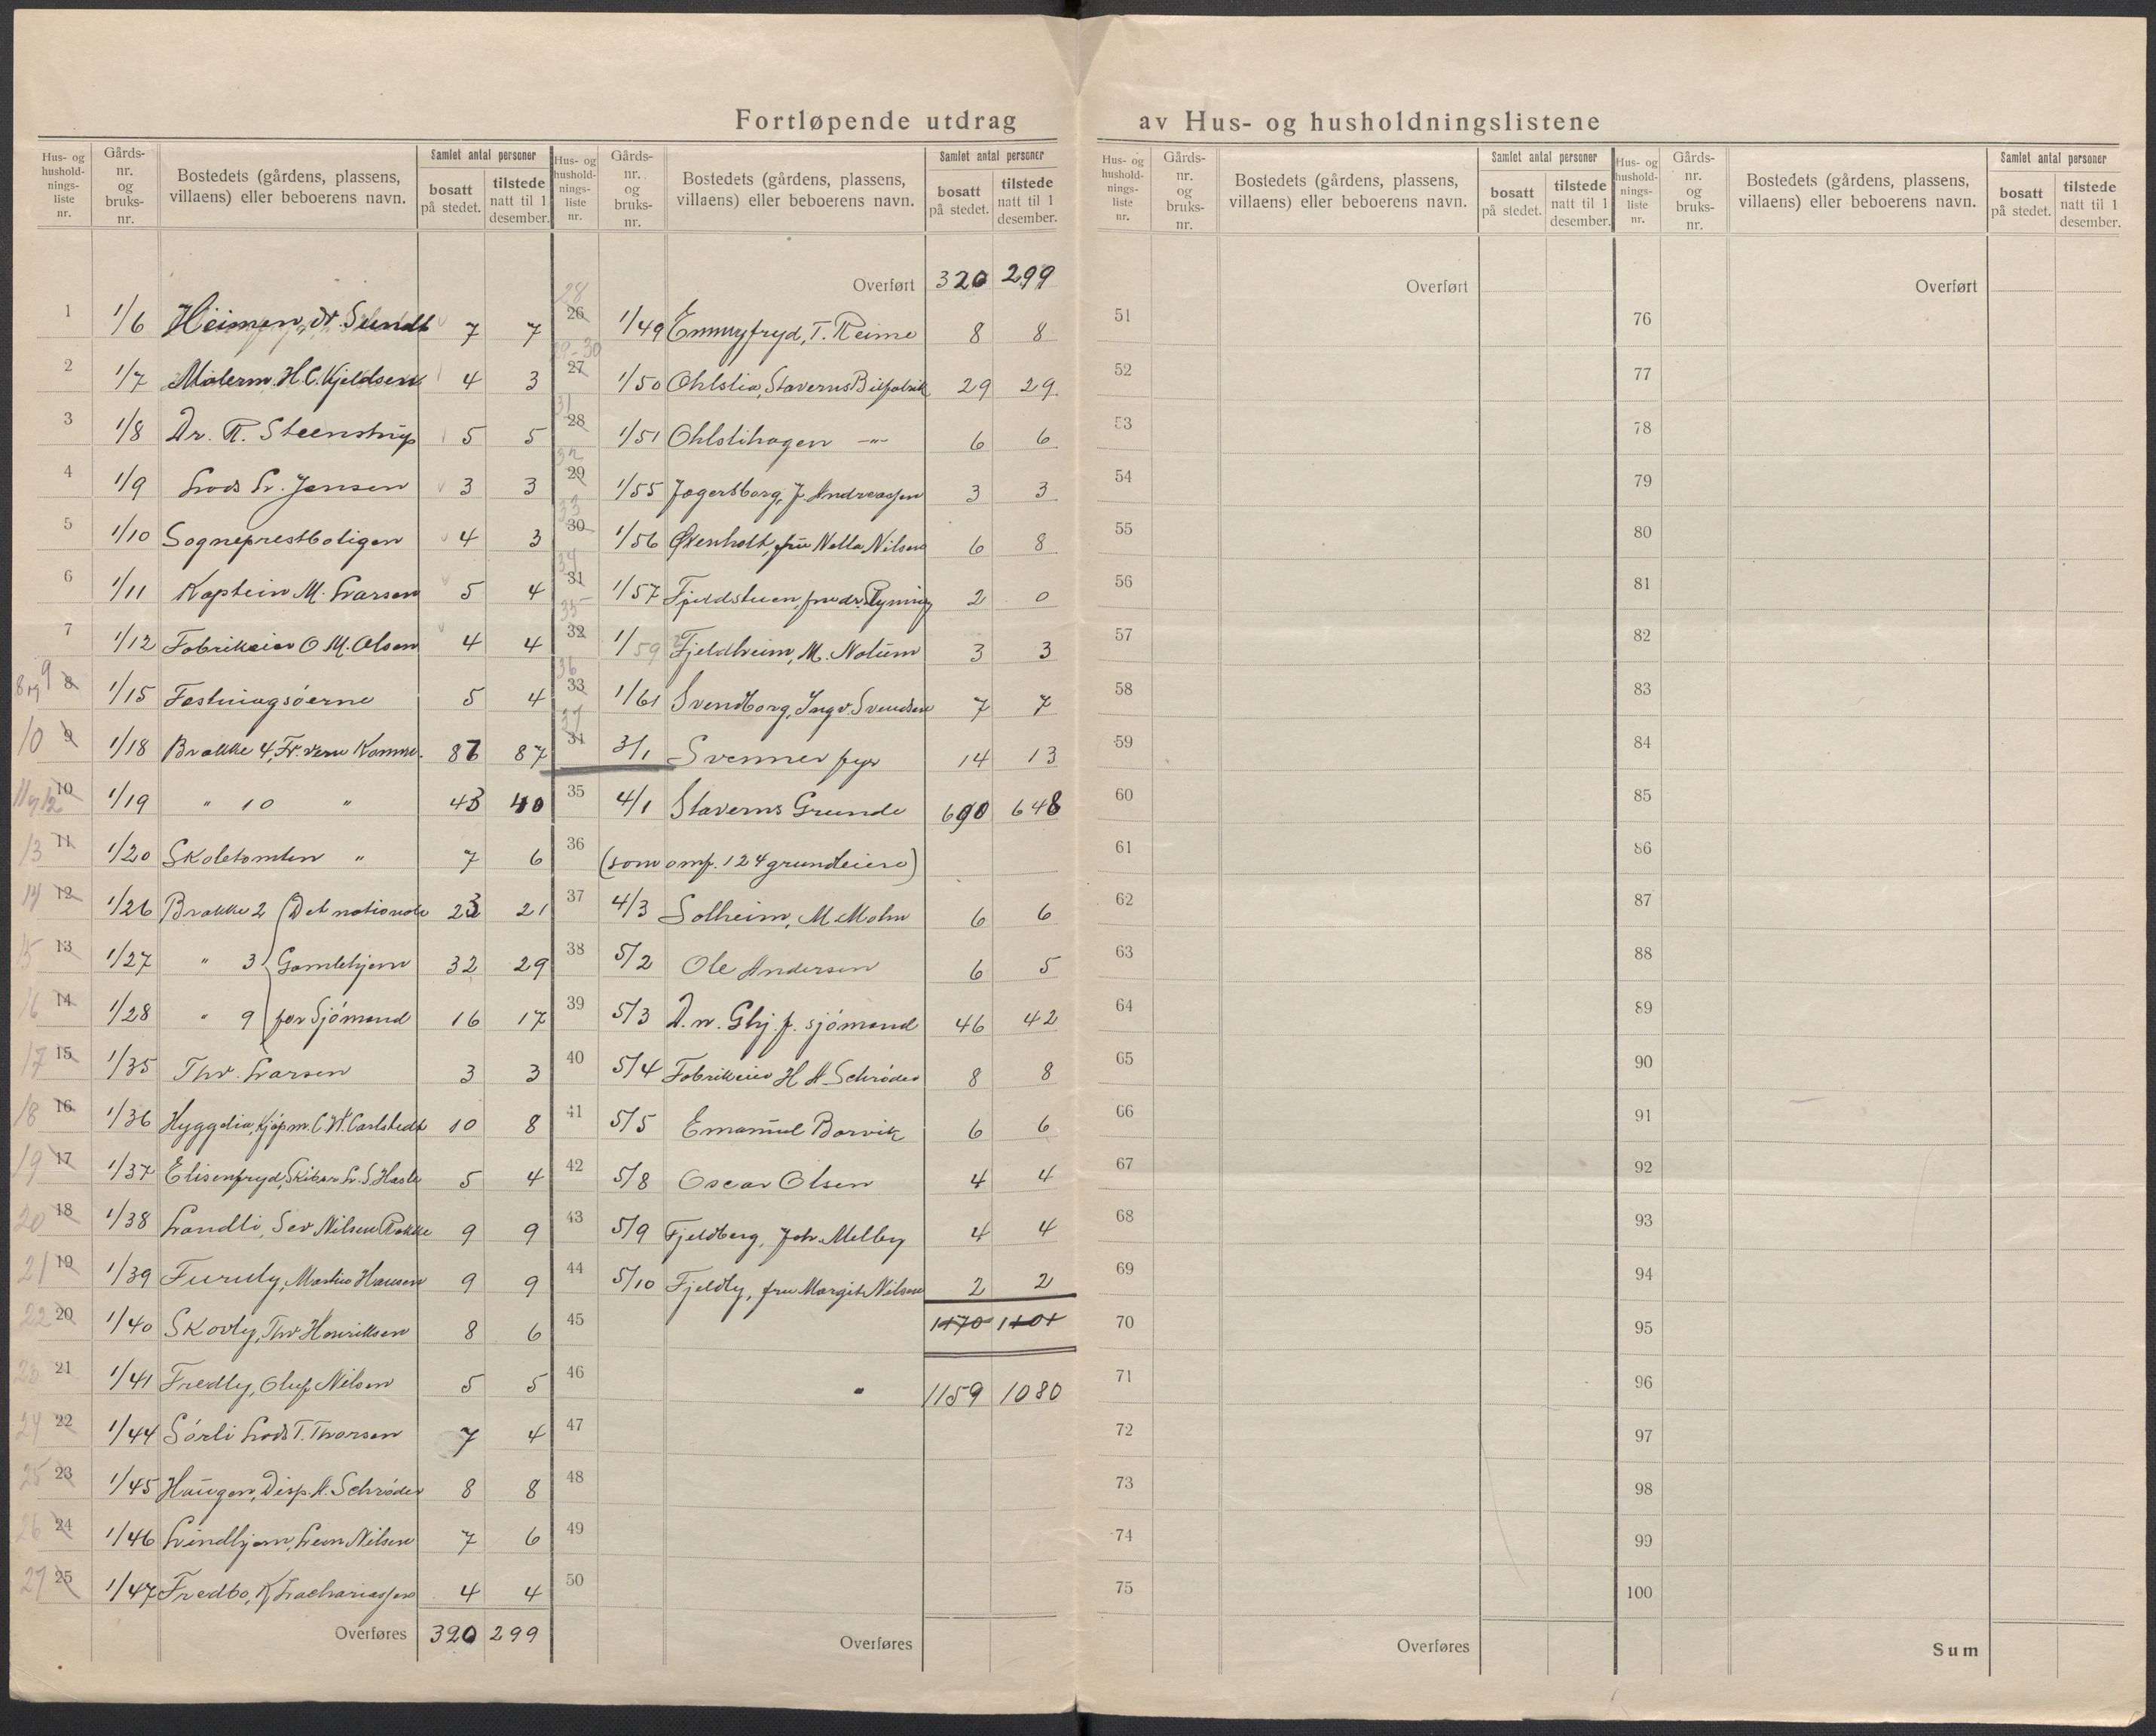 Fortløpende utdrag av Hus- og husholdningslistene
Hus- og hushold-nings-liste nr. Gårds-nr. og bruks-nr. Bostedets (gårdens, plassens, villaens) eller beboerens navn. Samlet antal personer bosatt på stedet. tilstede natt til 1 desember.
1 1/6 Heimen, Sundt 7 7
2 1/7 Malerm. H.C. Kjeldsen 4 3
3 1/8 Dr. R. Steenstrup 5 5
4 1/9 Lods L. Jensen 3 3
5 1/10 Sogneprestboligen 4 3
6 1/11 Kaptein M. Larsen 5 4
7 1/12 Fabrikeier O M. Olsen 4 4
8 og 9 8 1/15 Festningsöerne 5 4
10 9 1/18 Brakke 4, Fr. vern Komm. 87 87
11 og 12 10 1/19 " 10 " 43 40
13 11 1/20 Skoletomten " 7 6
14 12 1/26 Brakke 2 (Det nationale 23 21
15 13 1/27 " 3 Gamlehjem 32 29
16 14 1/28 " 9 for Sjömend 16 17
17 15 1/35 Thv. Larsen 3 3
18 16 1/36 Hyggelia, Kjøpm. C. W. Carlstedt 10 8
19 17 1/37 Elisenfryd, Skibsr. L. S. Hasle 5 4
20 18 1/38 Landli, Sev Nilsen Rakke 9 9
21 19 1/39 Furuly, Martin Hansen 9 9
22 20 1/40 Skovly, Thv Henriksen 8 6
23 21 1/41 Fredly, Oluf Nilsen 5 5
24 22 1/44 Sörli Lods T. Thorsen 7 4
25 23 1/45 Haugen, Disp. A. Schrøder 8 8
26 24 1/46 Lindhjem, Nilsen 7 6
27 25 1/47 Fredbo, K. Zachariassen 4 4
Overføres 320 299
Hus- og hushold-nings-liste nr. Gårds-nr. og bruks-nr. Bostedets (gårdens, plassens, villaens) eller beboerens navn. Samlet antal personer bosatt på stedet. tilstede natt til 1 desember.
Overført 320 299
28 26 1/49 Emmyfryd, T. Reime 8 8
29-30 27 1/50 Ohlslia, Staverns Bilfabrik 29 29
31 28 1/51 Ohlslihagen -"- 6 6
32 29 1/55 Jægersborg, J. Andreassen 3 3
33 30 1/56 Øxenholt, fru Nella Nilsen 6 8
34 31 1/57 Fjeldstuen, fru dr. Ryning 2 0
35 32 1/59 Fjeldheim, M. Nalum 3 3
36 33 1/61 Svendborg, Ingv. Svendsen 7 7
37 34 3/1 Svenner fyr 14 13
35 4/1 Staverns Grunde 690 648
36 (som omf. 124 grundeiere)
37 4/3 Solheim, M Malm 6 6
38 5/2 Ole Andersen 6 5
39 5/3 D. n. Ghj. f. sjömend 46 42
40 5/4 Fabrikeier H A. Schrøder 8 8
41 5/5 Emanuel Borvik 6 6
42 5/8 Oscar Olsen 4 4
43 5/9 Fjeldberg, Joh. Melby 4 4
44 5/10 Fjeldly, fru Margit Nilsen 2 2
45 1170 1101
46 " 1159 1080
47
48
49
50
Overføres
Hus- og hushold-nings-liste nr. Gårds-nr. og bruks-nr. Bostedets (gårdens, plassens, villaens) eller beboerens navn. Samlet antal personer bosatt på stedet. tilstede natt til 1 desember.
Overført
51
52
53
54
55
56
57
58
59
60
61
62
63
64
65
66
67
68
69
70
71
72
73
74
75
Overføres
Hus- og hushold-nings-liste nr. Gårds-nr. og bruks-nr. Bostedets (gårdens, plassens, villaens) eller beboerens navn. Samlet antal personer bosatt på stedet. tilstede natt til 1 desember.
Overført
76
77
78
79
80
81
82
83
84
85
86
87
88
89
90
91
92
93
94
95
96
97
98
99
100
Sum